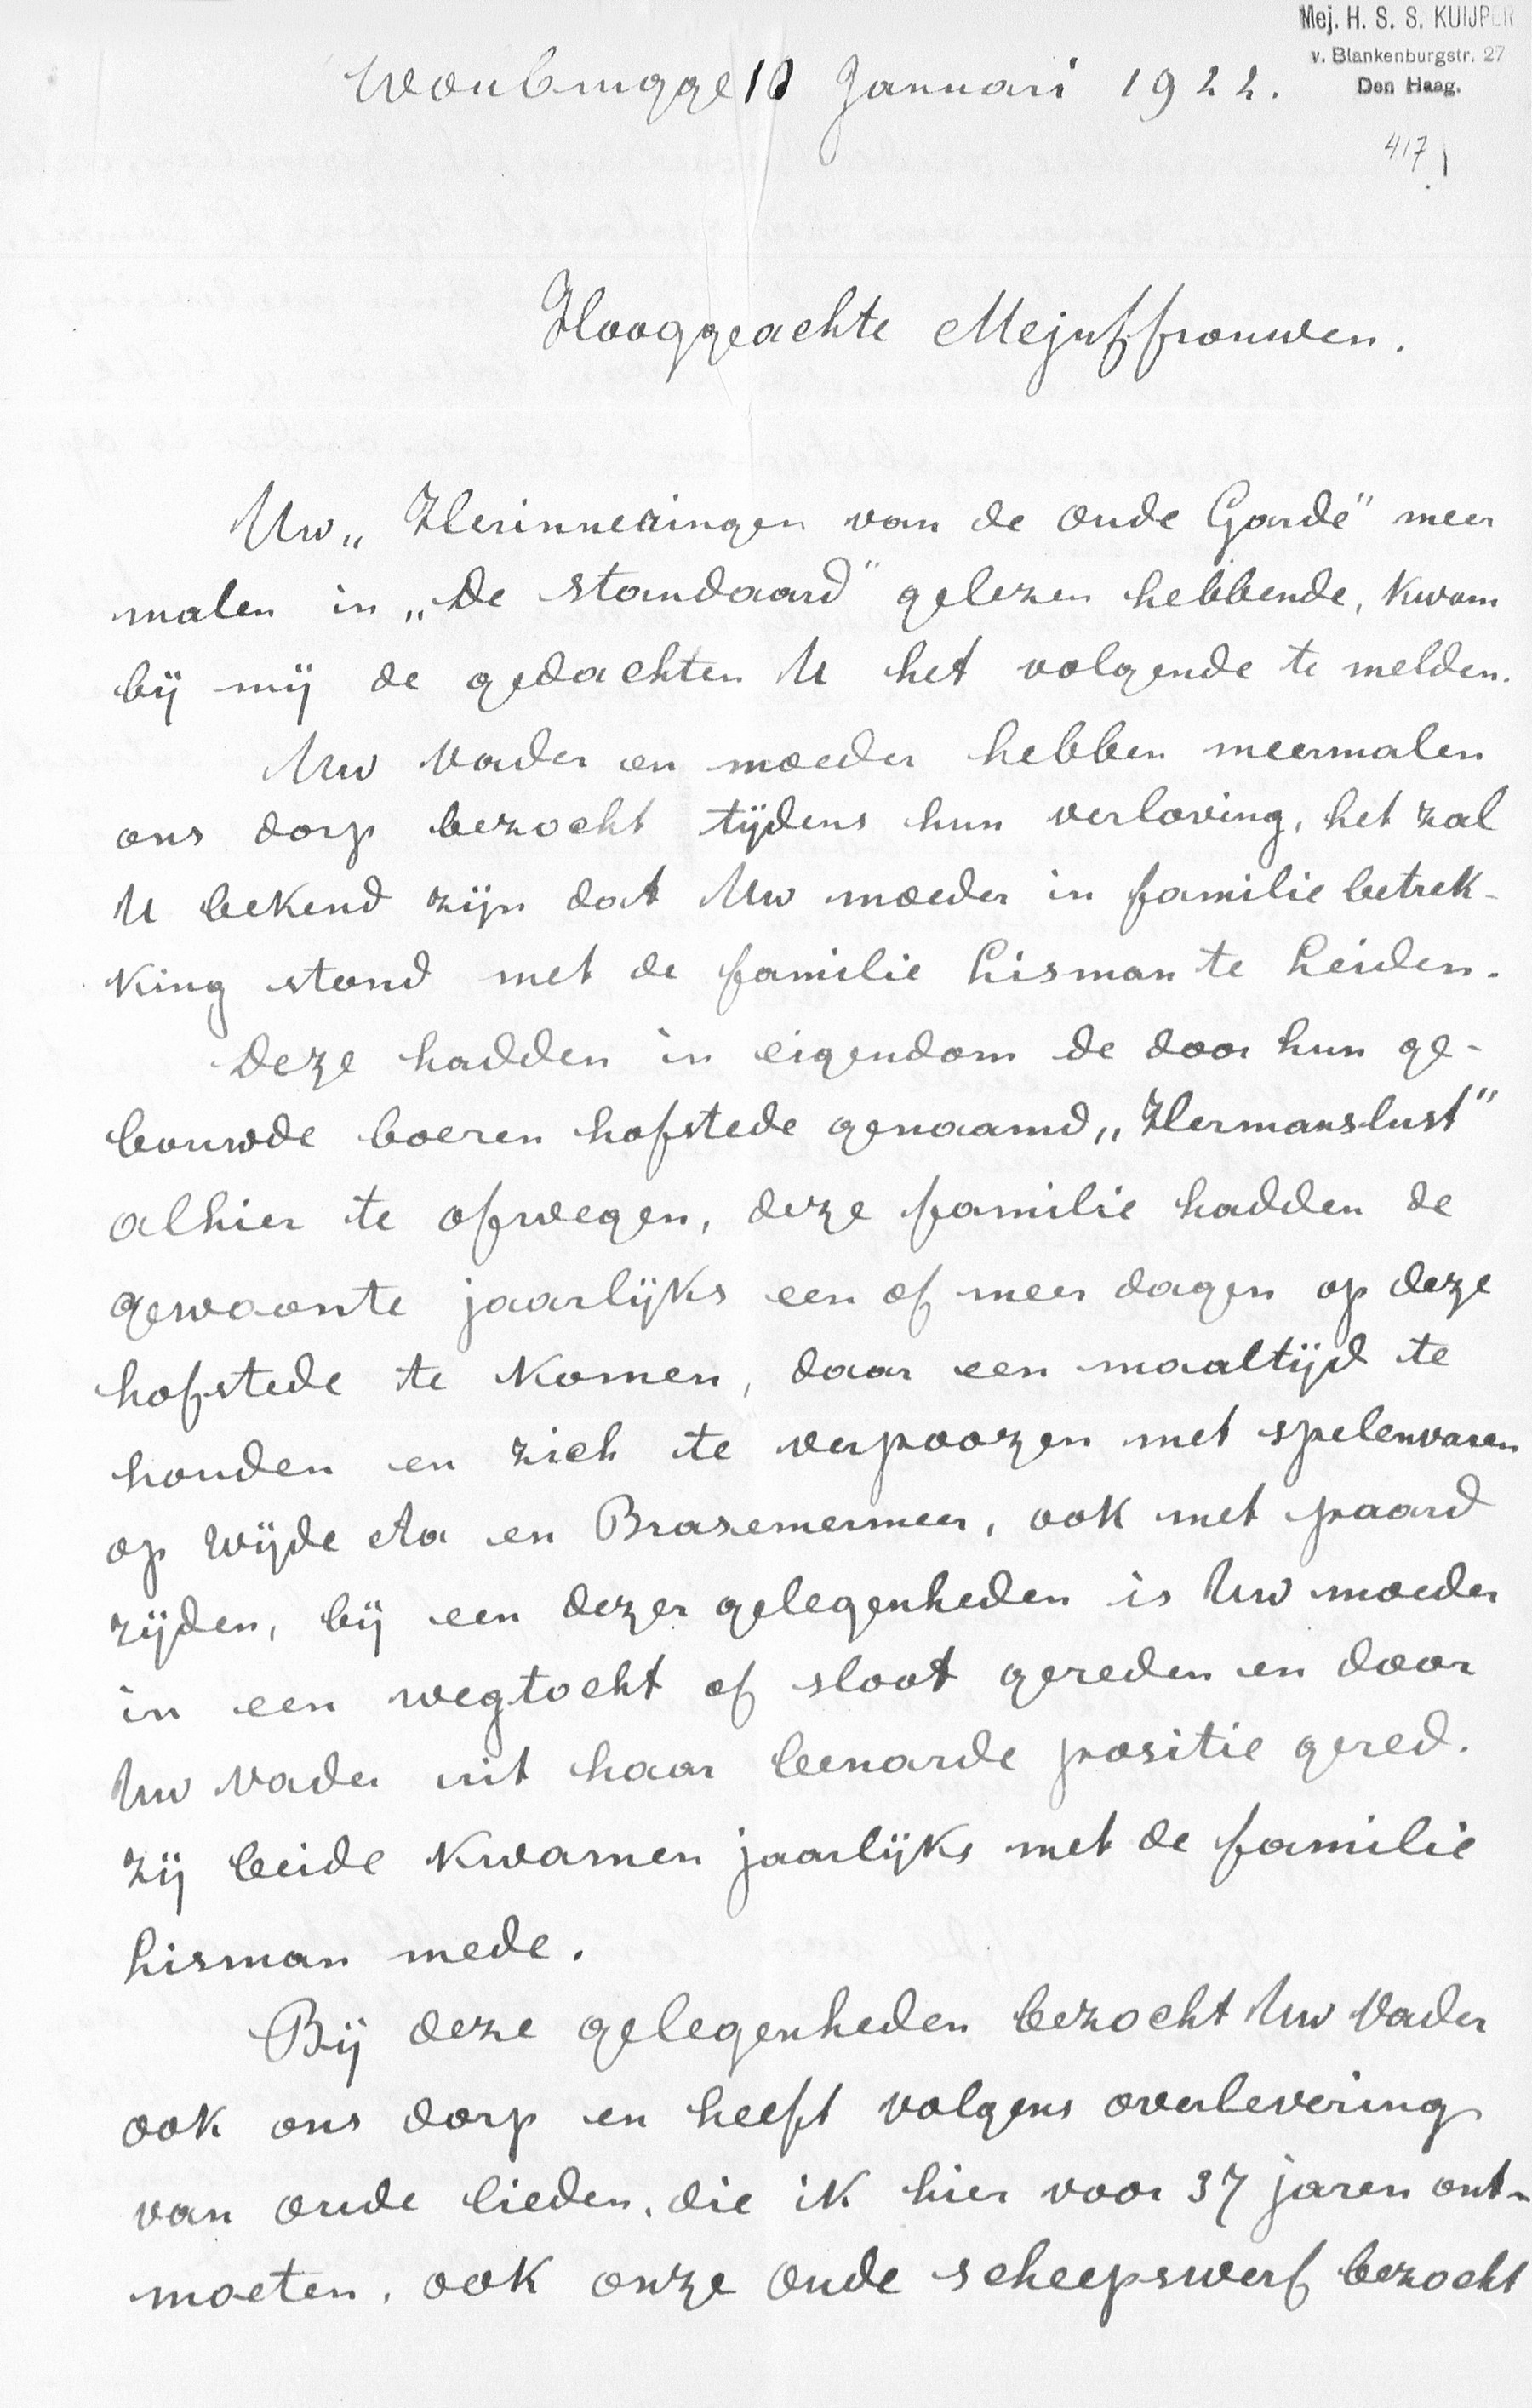 Mej. H. S. S. KUIJPER
v. Blankenburgstr. 27
Den Haag.
Woubrugge 10 Januari 1922.
417
Hooggeachte Mejuffrouwen.
Uw „Herinneringen van de oude Garde" meer
malen in „De Standaard" gelezen hebbende, kwam
bij mij de gedachten U het volgende te melden.
Uw Vader en moeder hebben meermalen
ons dorp bezocht tijdens hun verloving, het zal
U bekend zijn dat Uw moeder in familie betrek-
king stond met de familie Lisman te Leiden.
Deze hadden in eigendom de door hun ge-
bouwde boeren hofstede genaamd „Hermanslust"
alhier te ofwegen, deze familie hadden de
gewoonte jaarlijks een of meer dagen op deze
hofstede te komen, daar een maaltijd te
houden en zich te verpoozen met spelenvaren
op Wijde Aa en Brasemermeer, ook met paard
rijden, bij een dezer gelegenheden is Uw moeder
in een wegtocht of sloot gereden en door
Uw Vader uit haar benarde positie gered.
Zij beide kwamen jaarlijks met de familie
Lisman mede.
Bij deze gelegenheden bezocht Uw Vader
ook ons dorp en heeft volgens overlevering
van oude lieden, die ik hier voor 37 jaren ont-
moeten, ook onze oude scheepswerf bezocht